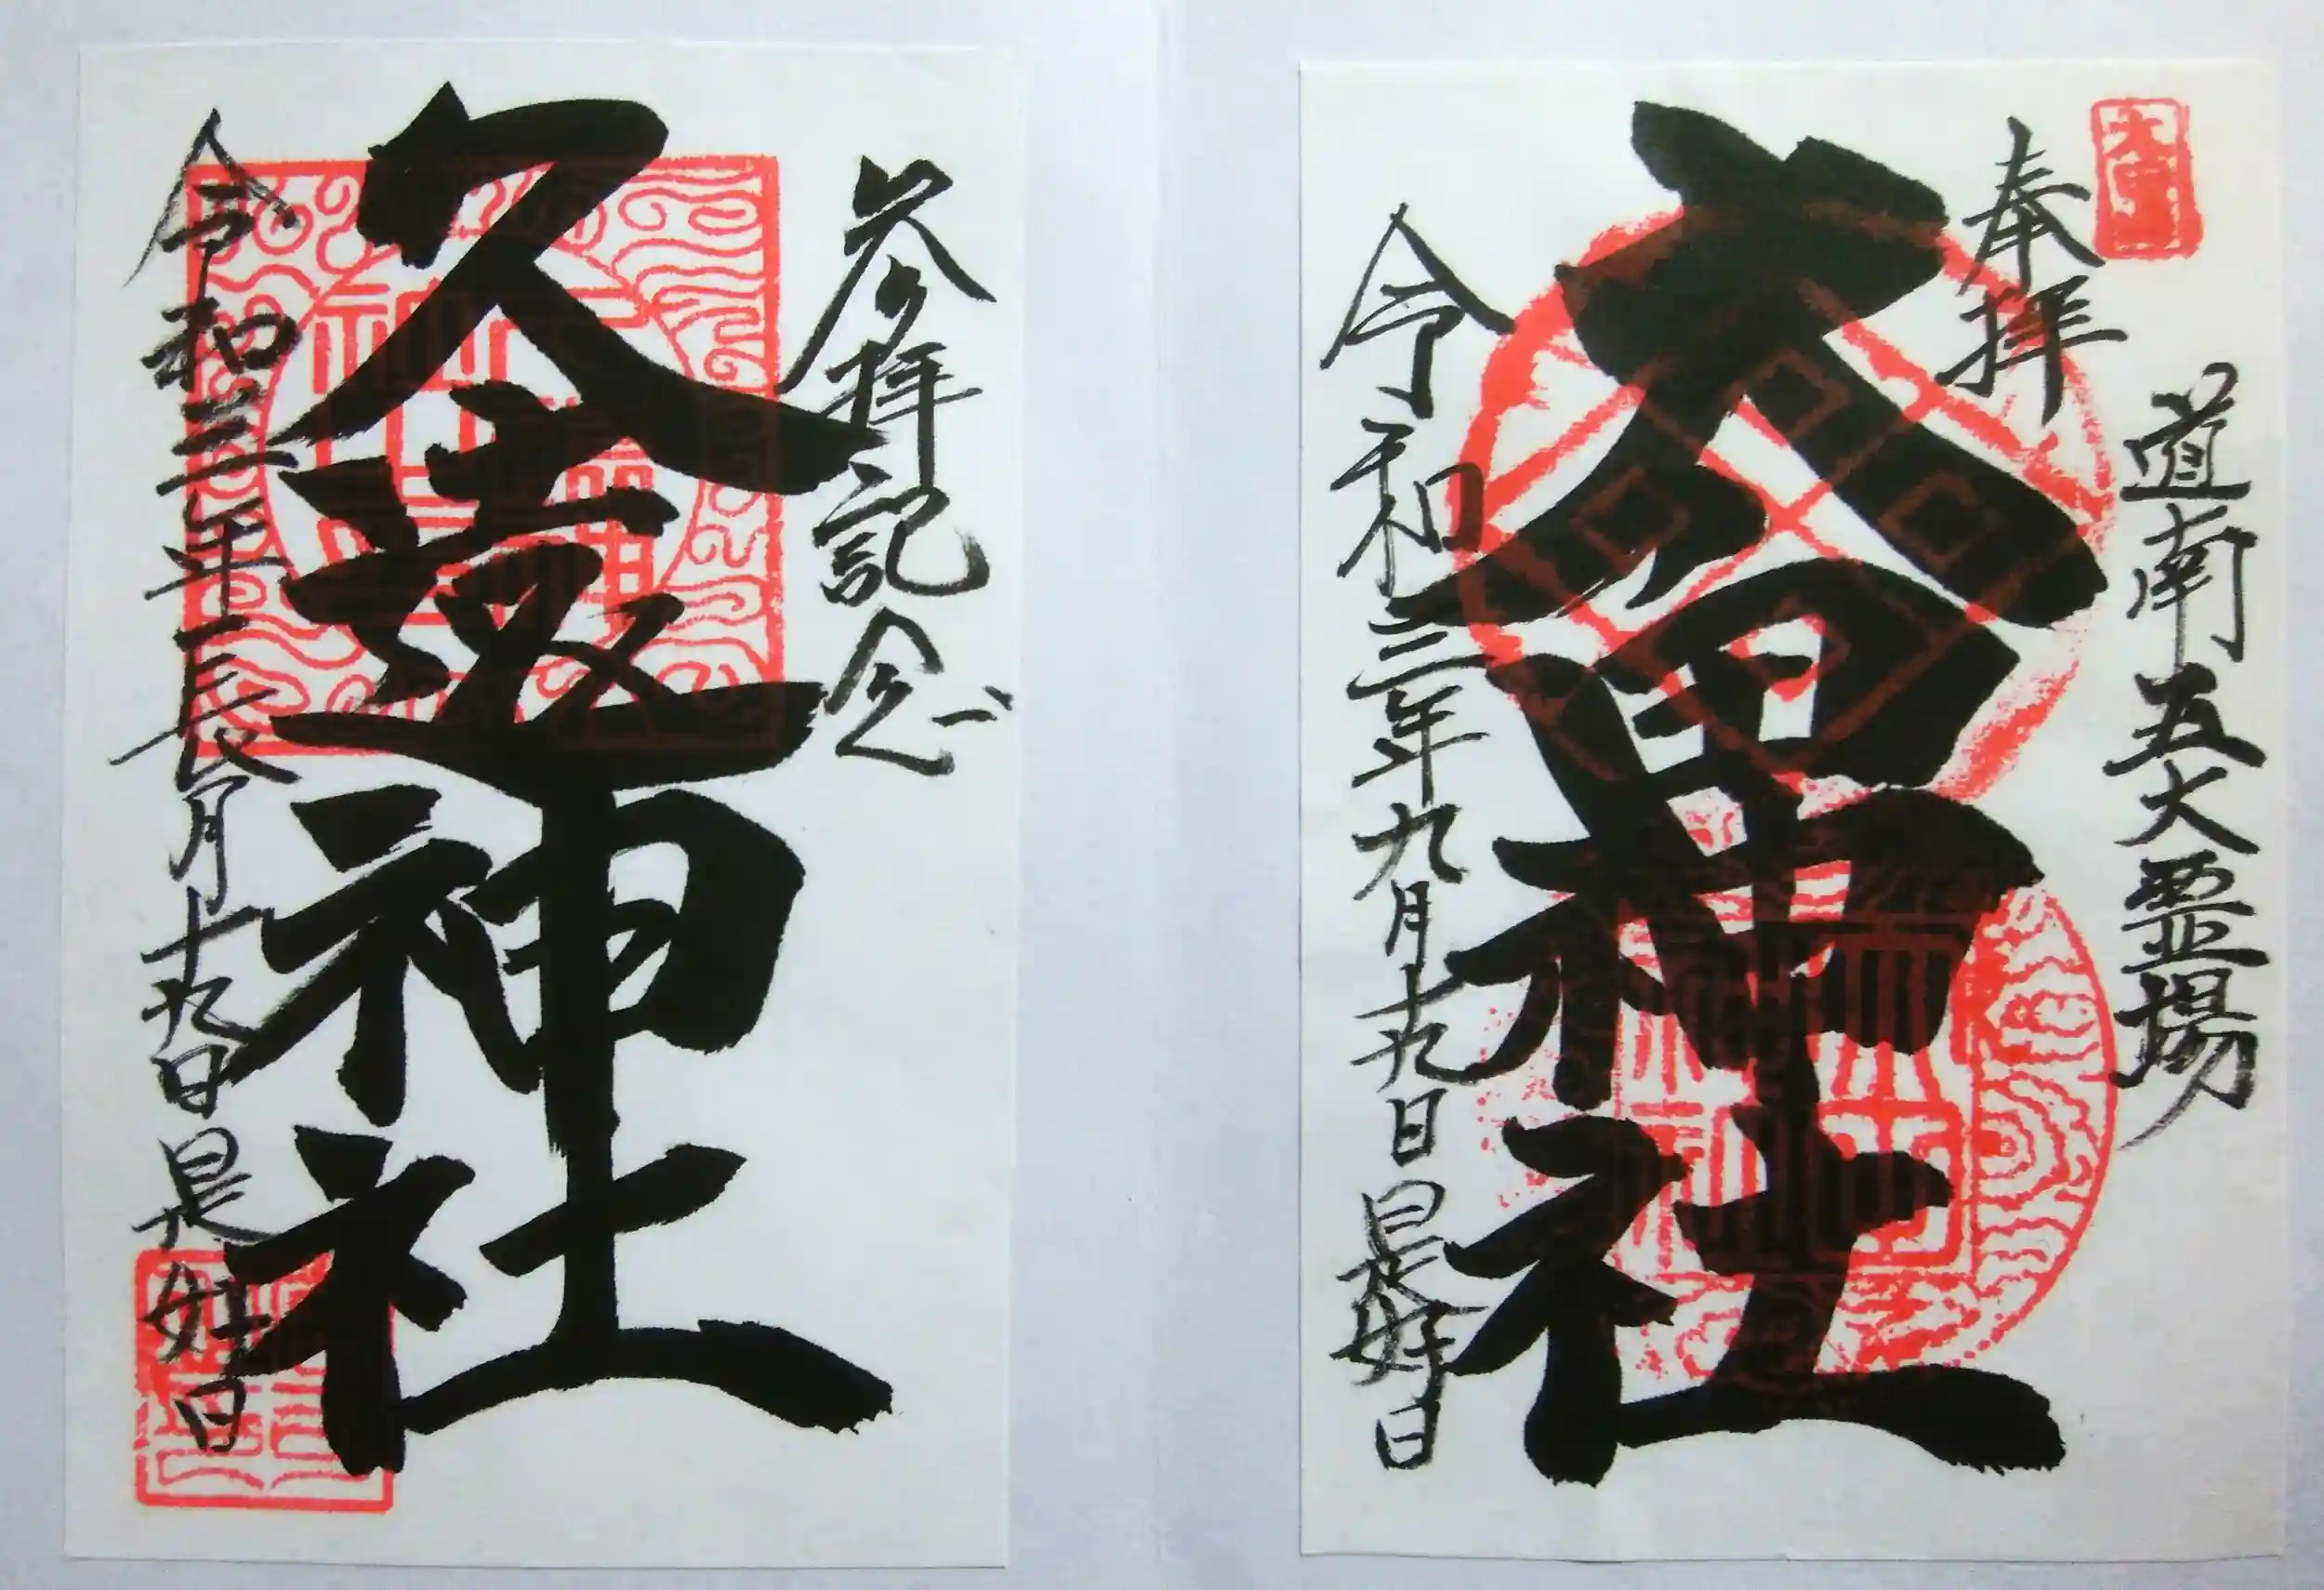 道南五大霊場
奉拝
太田神社
令和三年九月十九日是好日
参拝記念
久遠神社
令和三年長月十九日是好日